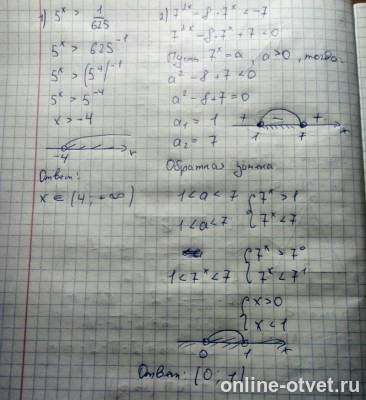 1) 5^x > 1/625
5^x > 625^-1
5^x > (5^4)^-1
5^x > 5^-4
x > -4
-4 x
Ответ:
x ∈ (4; +∞)
2) 7^2x - 8·7^x < -7
7^2x - 8·7^x + 7 < 0
Пусть 7^x = a, a>0, тогда
a² - 8 + 7 < 0
a² - 8 + 7 = 0
a₁ = 1
a₂ = 7
+ - +
1 7 x
Обратная замена
1 < a < 7 { 7^x > 1
1 < a < 7 { 7^x < 7
{ 7^x > 7^0
1 < 7^x < 7 { 7^x < 7^1
{ x > 0
{ x < 1
0 1 x
Ответ: (0; 1)
online-otvet.ru